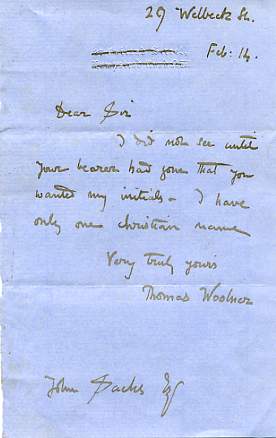 29 Welbeck St.
Feb: 14.
Dear Sir
I did not see until
your bearer had gone that you
wanted my initials - I have
only one christian name
Very truly yours
Thomas Woolner
John Sachs Esq